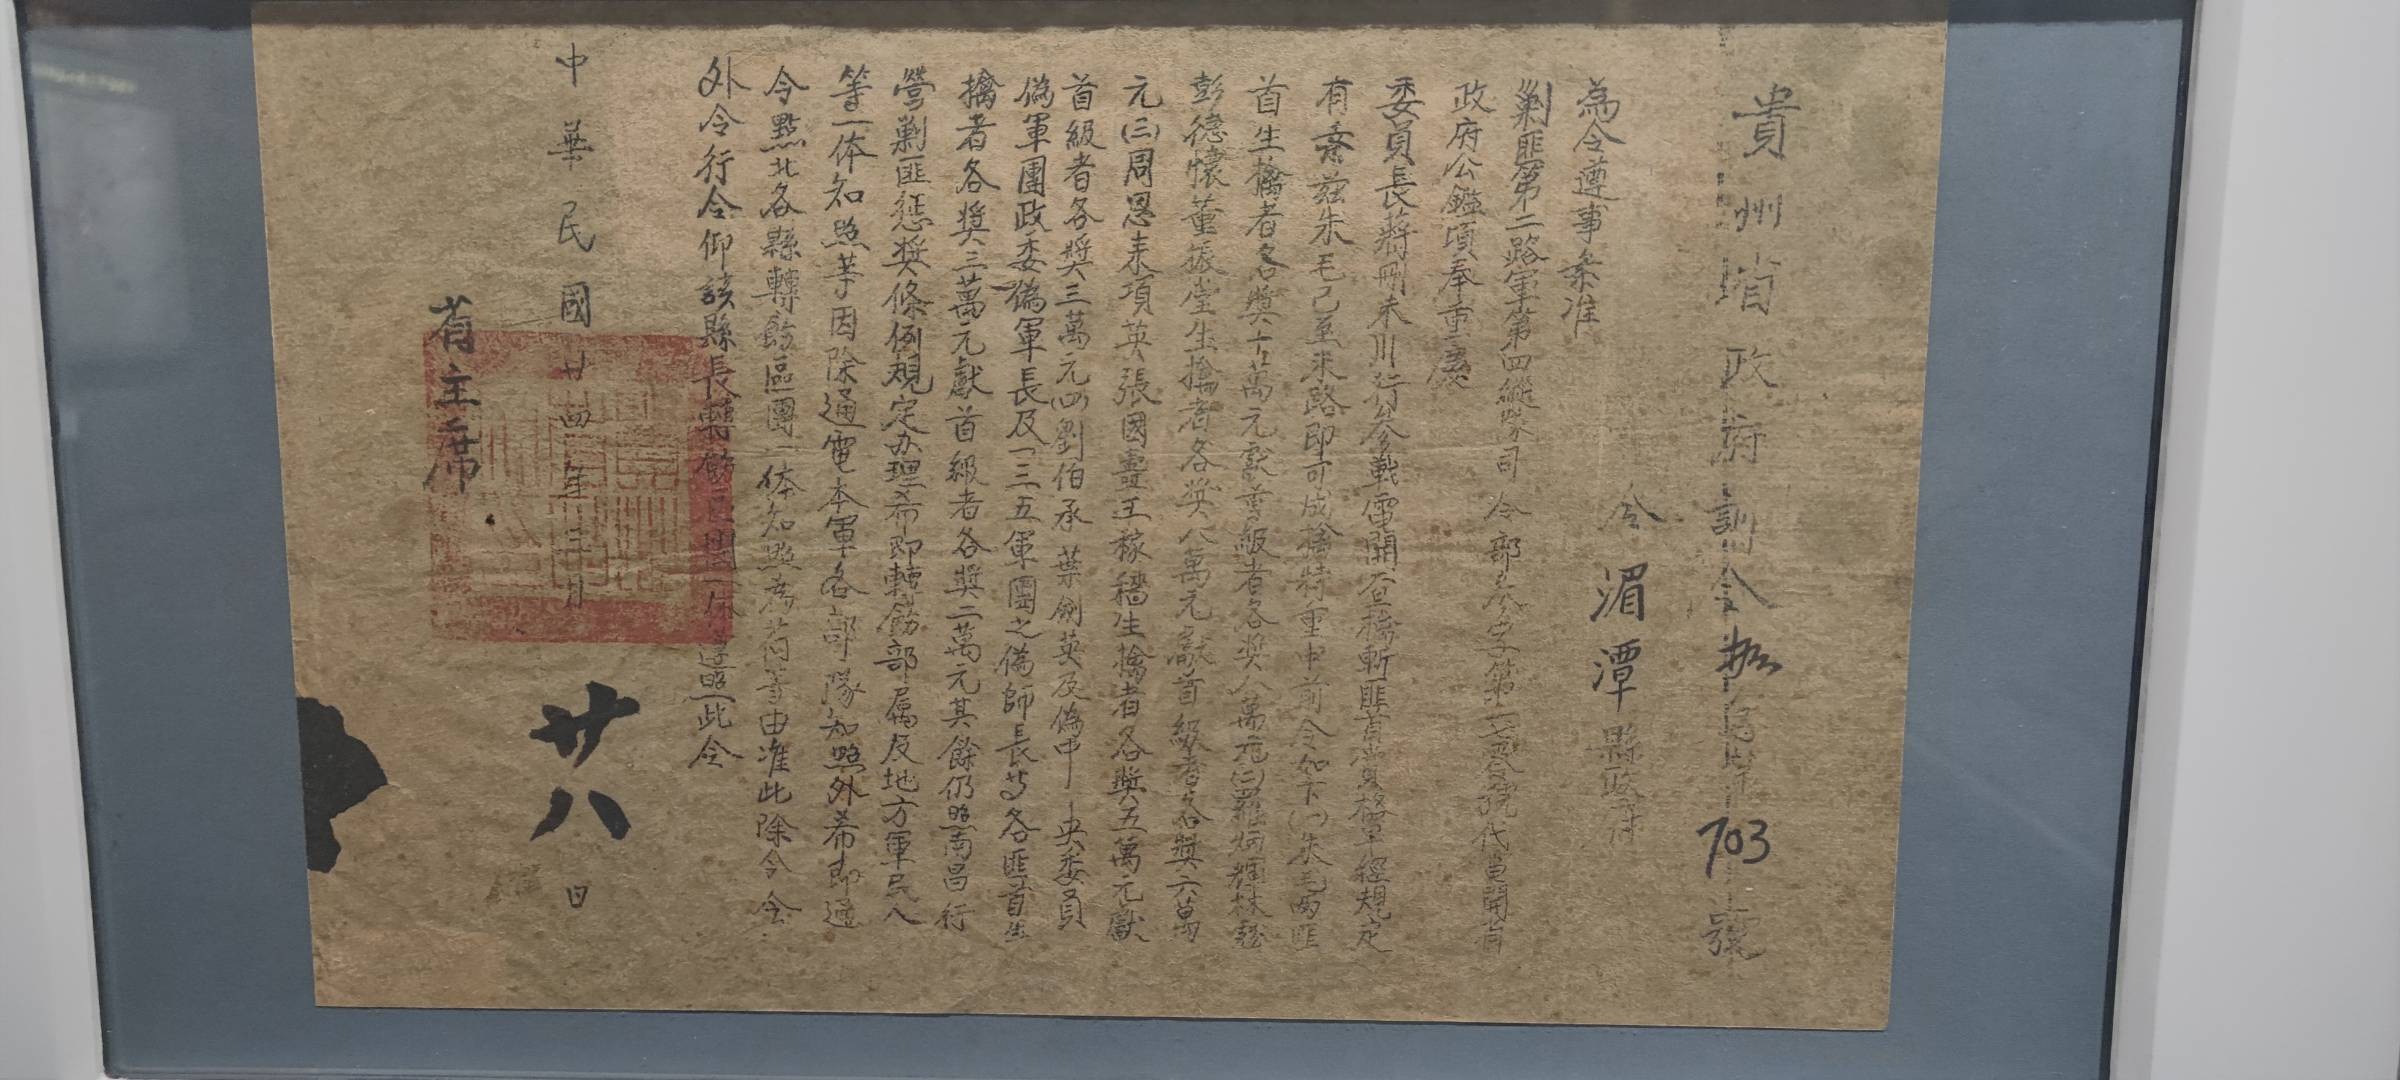 貴州省政府訓令 703號
令湄潭縣政府
為令遵事案准
剿匪第二路軍第四縱隊司令部 字第 號代電開省
政府公鑑頃奉重慶
委員長蔣刪未川行參戰電開查擒斬匪首賞格早經規定
有案茲朱毛已至末路即可成擒特重申前令如下(一)朱毛兩匪
首生擒者各獎十萬元獻首級者各獎八萬元(二)羅炳輝林彪
彭德懷董振堂生擒者各獎八萬元獻首級者各獎六萬
元(三)周恩来項英張國燾王稼穡生擒者各獎五萬元獻
首級者各獎三萬元(四)劉伯承葉劍英及偽中央委員
偽軍團政委偽軍長及一三五軍團之偽師長等各匪首生
擒者各獎三萬元獻首級者各獎二萬元其餘仍照南昌行
營剿匪懲獎條例規定办理希即轉飭部属及地方軍民人
等一体知照等因除通電本軍各部隊知照外希即通
令黔北各縣轉飭區團一体知照為荷等由准此除令
外合行令仰該縣長轉飭區團一体遵照此令
中華民國廿四年三月廿八日
主席